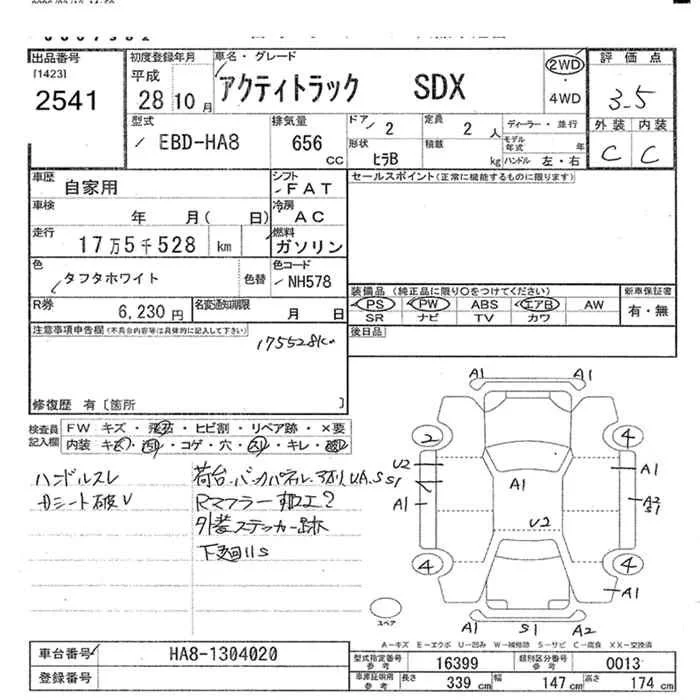 出品番号
[1423]
2541
初度登録年月
平成
28 10 月
車名・グレード
アクティトラック SDX
2WD
・
4WD
評価点
3.5
外装 内装
C C
型式
EBD-HA8
排気量
656
cc
ドア 2
定員 2 人
形状
ヒラB
積載
kg
ディーラー・並行
モデル年式 年
ハンドル 左・右
車歴
自家用
シフト
FAT
セールスポイント(正常に機能するものに限ります)
車検
年 月( 日)
冷房
AC
走行
17万5千528 km
燃料
ガソリン
色
タフタホワイト
色替
色コード
NH578
装備品 (純正品に限り○をつけてください)
新車保証書
PS PW ABS エアB AW
SR ナビ TV カワ
有・無
R券
6,230 円
名変通知期限
月 日
後日品
注意事項申告欄(不具合内容等は具体的に記入して下さい)
175528km
修復歴 有〔箇所 〕
検査員
記入欄
FW キズ・飛石・ヒビ割・リペア跡・×要
内装 キズ・汚れ・コゲ・穴・スレ・キレ・
ハンドルスレ
シート破レ
荷台・バックパネル・アオリ U.A.S
Rマフラー加工?
外装ステッカー跡
下廻りS
A1 A1
2 4
U2 A1
S1
A1 A1 A2
S1
U2
4 4
A1
A1 S1 A2
スペア
A-キズ E-エクボ U-凹み W-補修跡 S-サビ C-腐食 XX-交換済
車台番号
HA8-1304020
登録番号
型式指定番号
参考
16399
類別区分番号
参考
0013
車庫証明用
参考
長さ 339 cm 幅 147 cm 高さ 174 cm